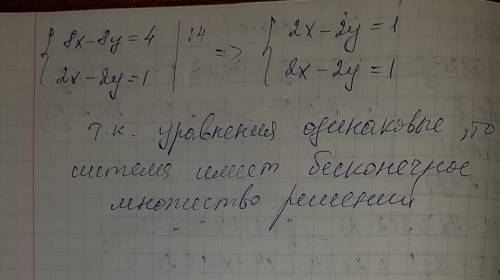 { 8x-8y=4 | :4 => { 2x-2y=1
{ 2x-2y=1 { 2x-2y=1
т.к. уравнения одинаковые, то
система имеет бесконечное
множество решений